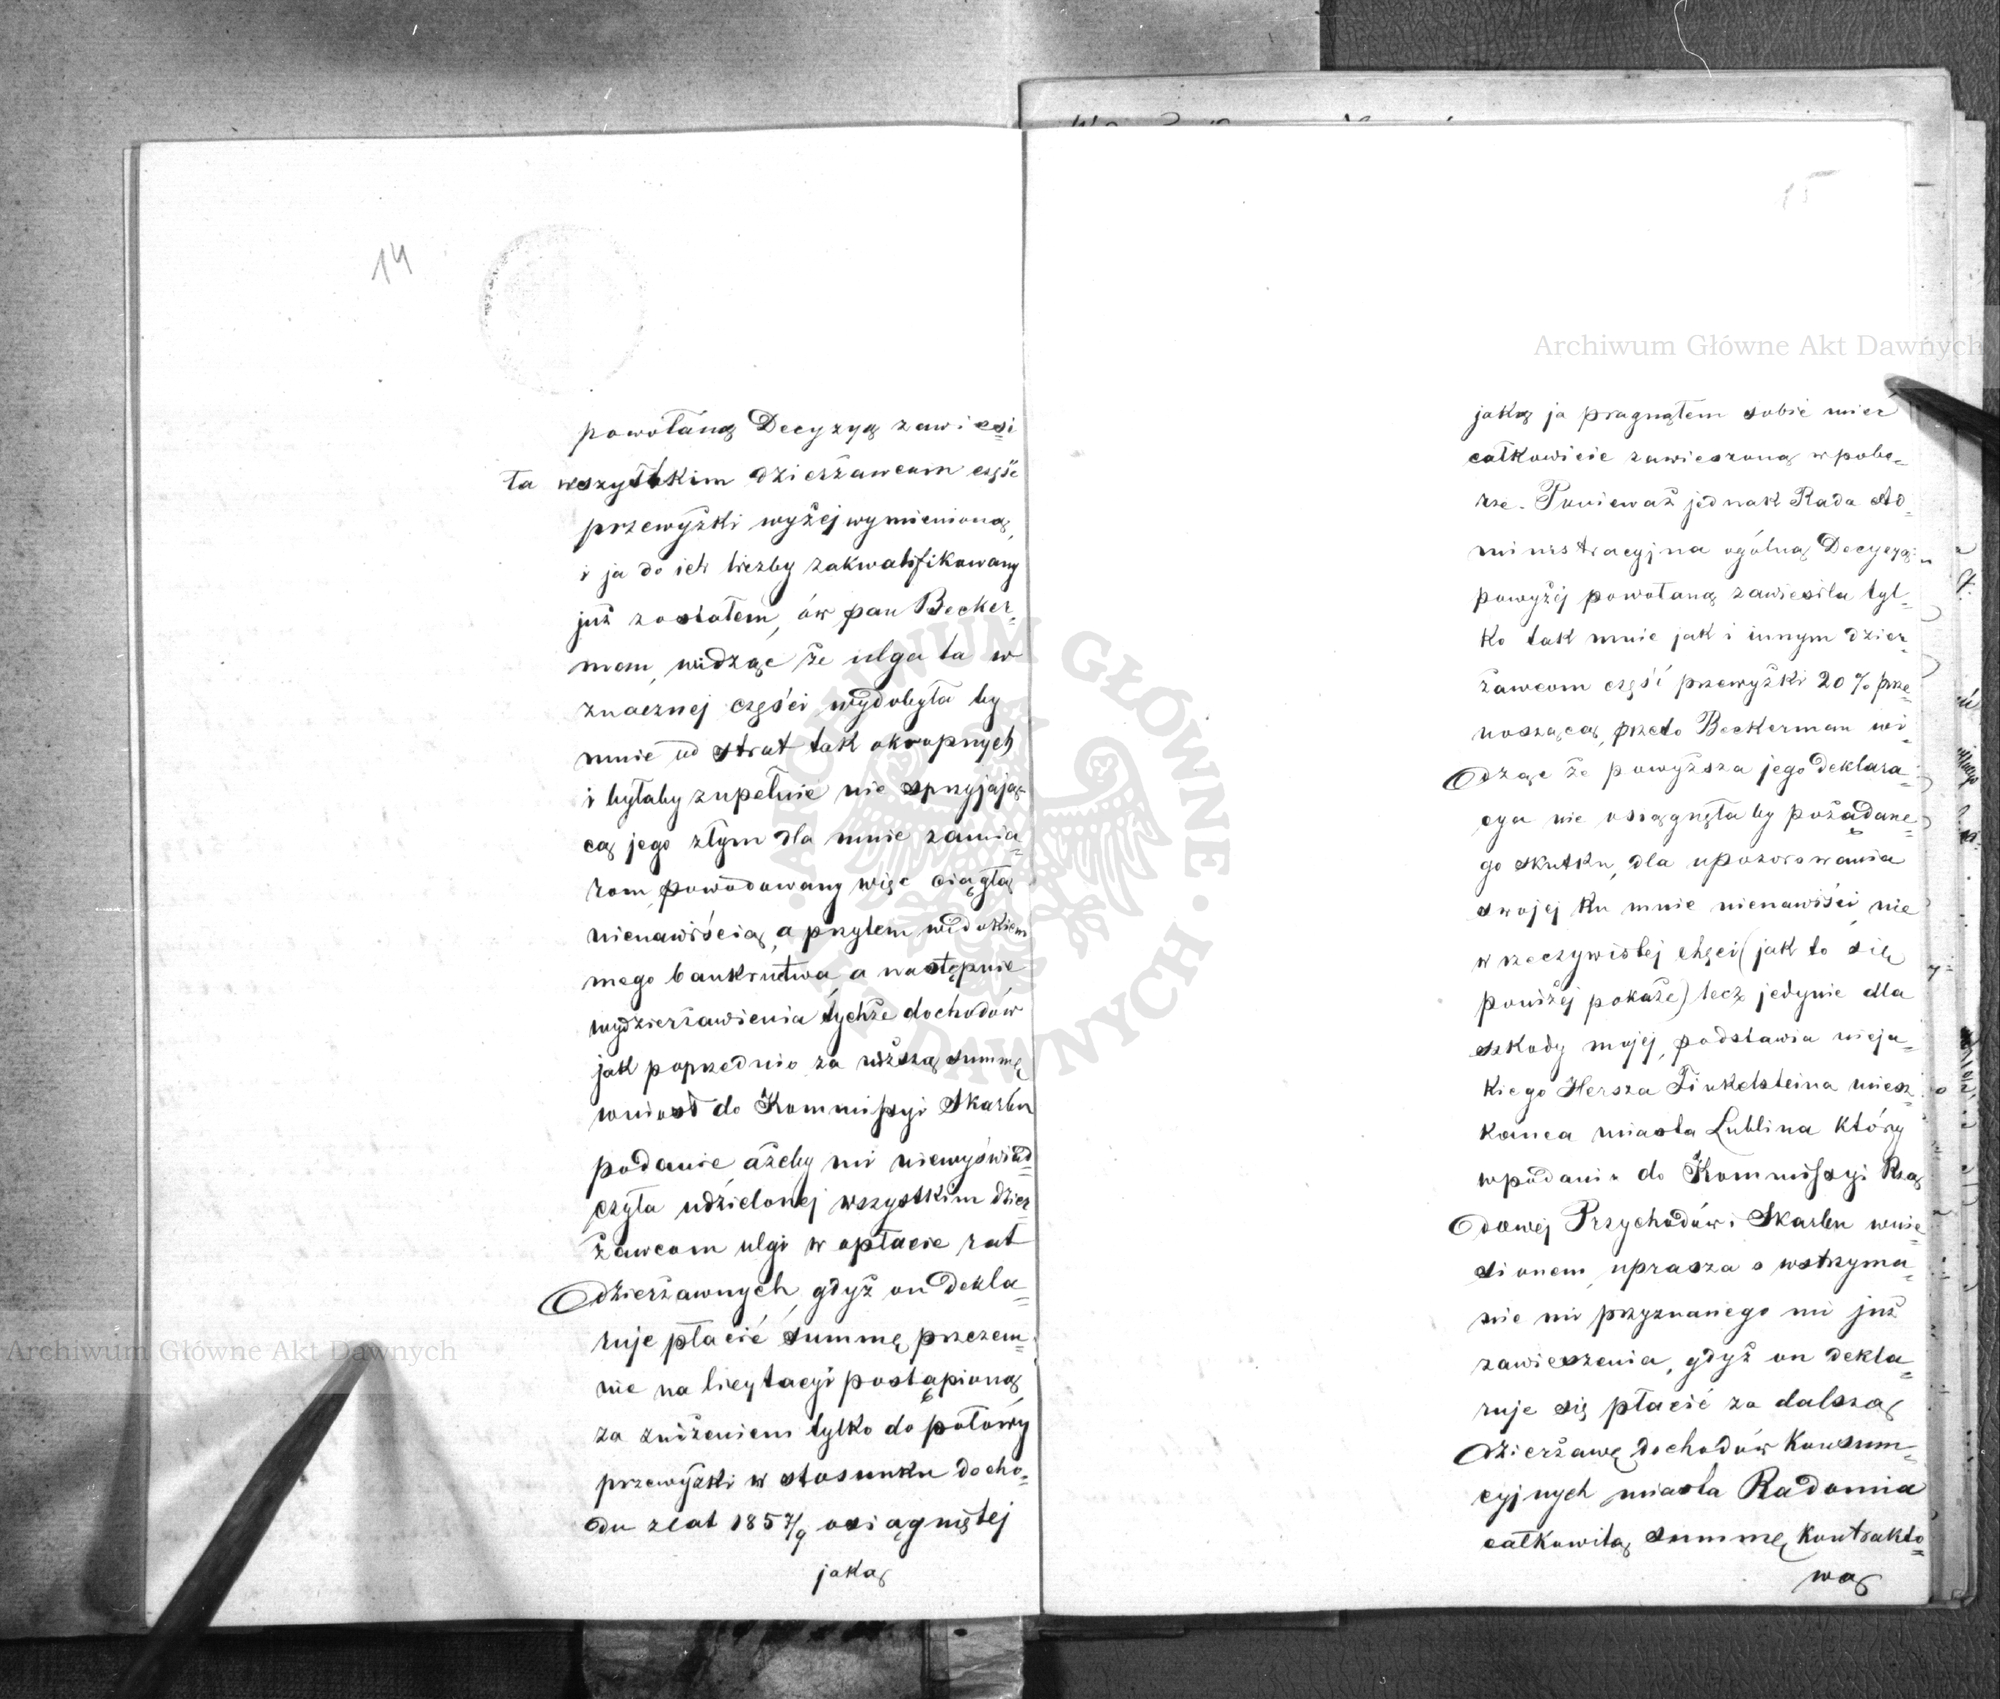 14
powołaną Decyzyą zawiesi
ła wszystkim dzierżawcom część
przewyżki wyżej wymienioną,
i ja do ich liczby zakwalifikowany
już zostałem, ów pan Becker=
man, widząc że ulga ta w
znacznej części wydobyła by
mnie od strat tak okropnych
i byłaby zupełnie nie sprzyjają=
cą jego złym dla mnie zamia=
rom, powodowany więc ciągłą
nienawiścią, a przytem widokiem
mego bankructwa, a następnie
wydzierżawienia tychże dochodów
jak poprzednio za niższą summę
wniosł do Kommissyi Skarbu
podanie ażeby mi niewyświad=
czyła udzielonej wszystkim dzier=
żawcom ulgi w opłacie rat
dzierżawnych, gdyż on dekla=
ruje płacić summę przezem=
nie na licytacyi postąpioną
za zniżeniem tylko do połowy
przewyżki w stosunku docho=
du z lat 1857/9 osiągniętej
jaką
15
jaką ja pragnąłem sobie mieć
całkowicie zawieszoną w pobo=
rze. Ponieważ jednak Rada Ad=
ministracyjna ogólną Decyzyą
powyżej powołaną zawiesiła tyl=
ko tak mnie jak i innym dzier=
żawcom część przewyżki 20 % prze=
noszącą, przeto Beckerman wi=
dząc że powyższa jego deklara=
cya nie osiągnęła by pożądane=
go skutku, dla upozorowania
swojej ku mnie nienawiści, nie
w rzeczywistej chęci (jak to się
poniżej pokaże) lecz jedynie dla
szkody mojej, podstawia nieja=
kiego Hersza Finkelsteina miesz=
kańca miasta Lublina który
w podaniu do Kommissyi Rzą=
dowej Przychodów i Skarbu wnie=
sionem, uprasza o wstrzyma=
nie mi przyznanego mi już
zawieszenia, gdyż on dekla=
ruje się płacić za dalszą
dzierżawę dochodów Konsum=
cyjnych miasta Radomia
całkowitą summę Kontrakto=
wą
Archiwum Główne Akt Dawnych
Archiwum Główne Akt Dawnych
ARCHIWUM GŁÓWNE AKT DAWNYCH